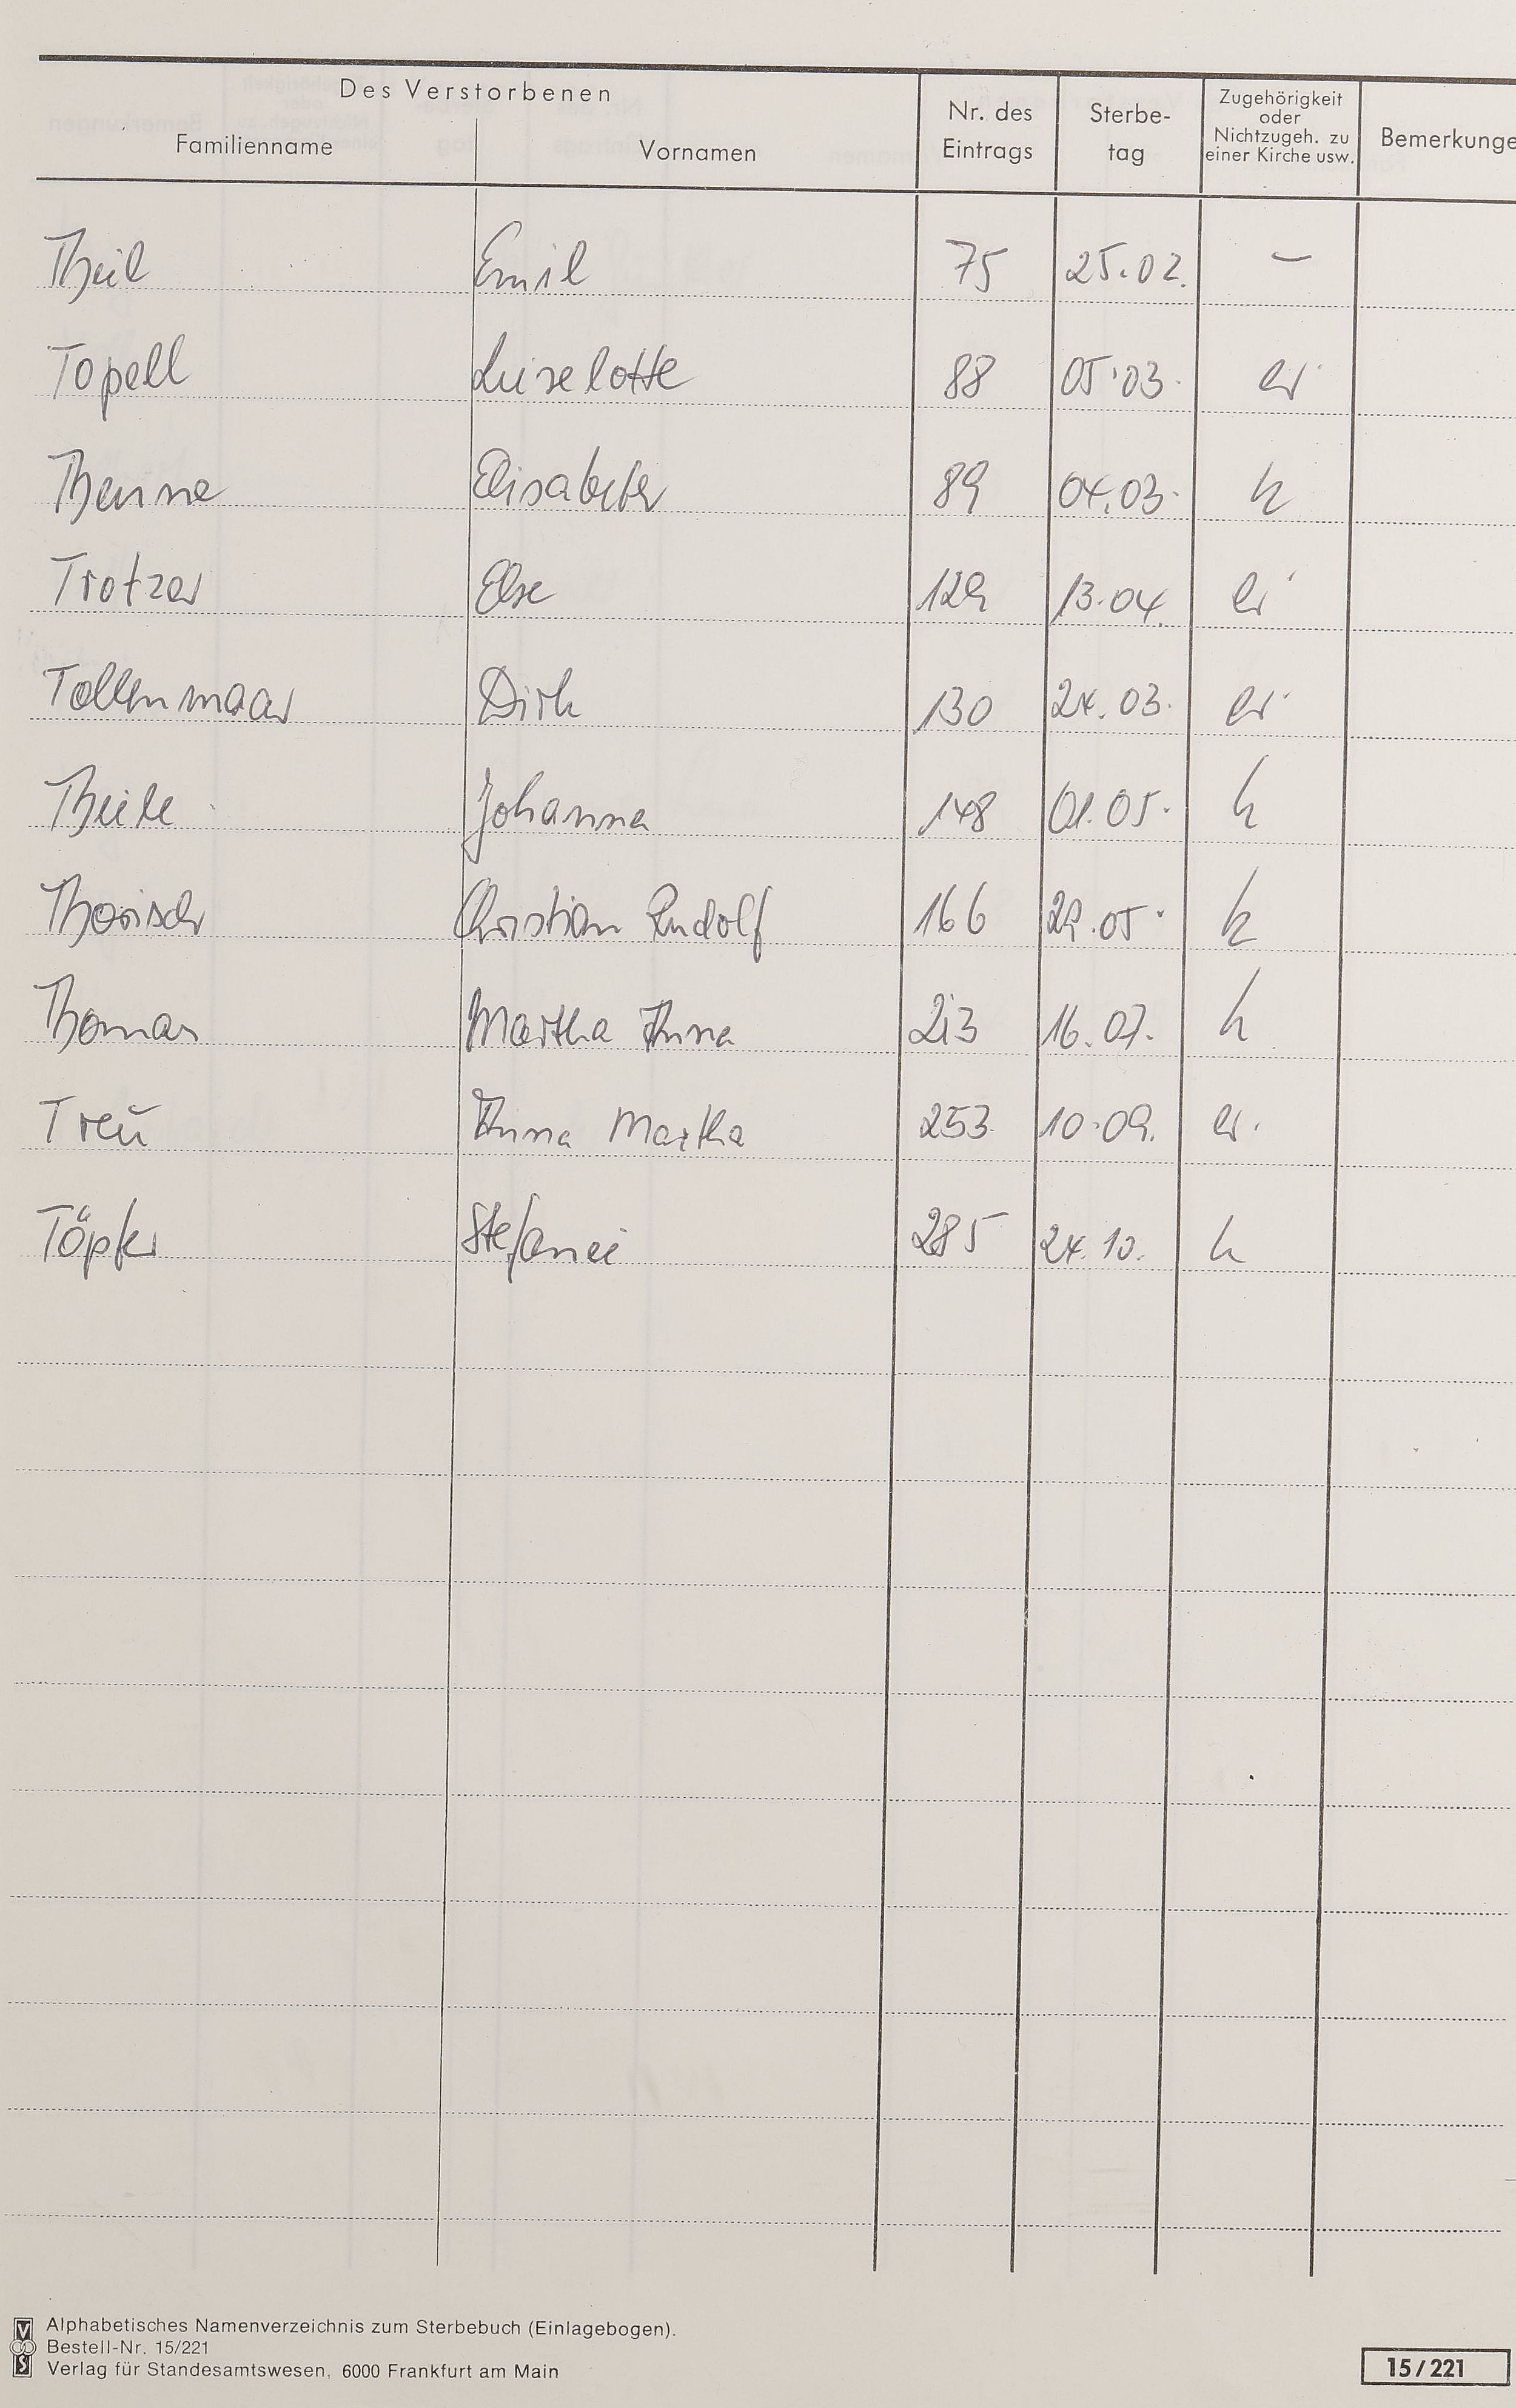 Des Verstorbenen
Familienname Vornamen Nr. des Eintrags Sterbe-tag Zugehörigkeit oder Nichtzugeh. zu einer Kirche usw. Bemerkunge
Theil Emil 75 25.02. –
Topell Liselotte 88 05.03. ev.
Elisabeth 89 04.03. k
Trotzer Else 129 13.04. ev.
Tollenmaar Dirk 130 24.03. ev.
Theile Johanna 148 01.05. k
Christian Rudolf 166 29.05. k
Thomas Martha Anna 213 16.07. k
Treu Anna Martha 253 10.09. ev.
Töpfer Stefanie 285 24.10. k
Alphabetisches Namenverzeichnis zum Sterbebuch (Einlagebogen).
Bestell-Nr. 15/221
Verlag für Standesamtswesen, 6000 Frankfurt am Main
15/221